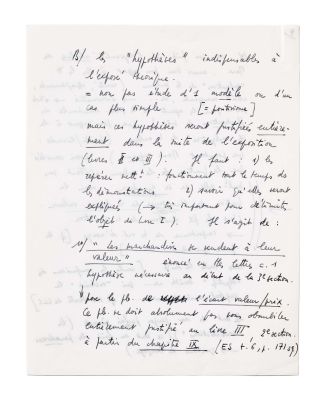 B/ les "hypothèses" indispensables à
l'exposé théorique.
= non pas étude d'1 modèle ou d'un
cas plus simple. [= positivisme]
mais ces hypothèses seront justifiées entière-
ment dans la suite de l'exposition
(livres II et III) : Il faut : 1) les
repérer nettt : fonctionnent tout le temps de
les démonstrations 2) savoir qu'elles seront
expliquées (→ très important pour délimiter
l'objet du Livre I). Il s'agit de :
"Les marchandises se vendent à leur
valeur" énoncé en ttes lettres c. 1
hypothèse nécessaire au début de la 2e section.
pose le pb. de l'écart valeur/prix.
Ce pb. ne doit absolument pas nous obnubiler
entièrement justifié au livre III 2e section
à partir du chapitre IX (ES t. 6, p. 171